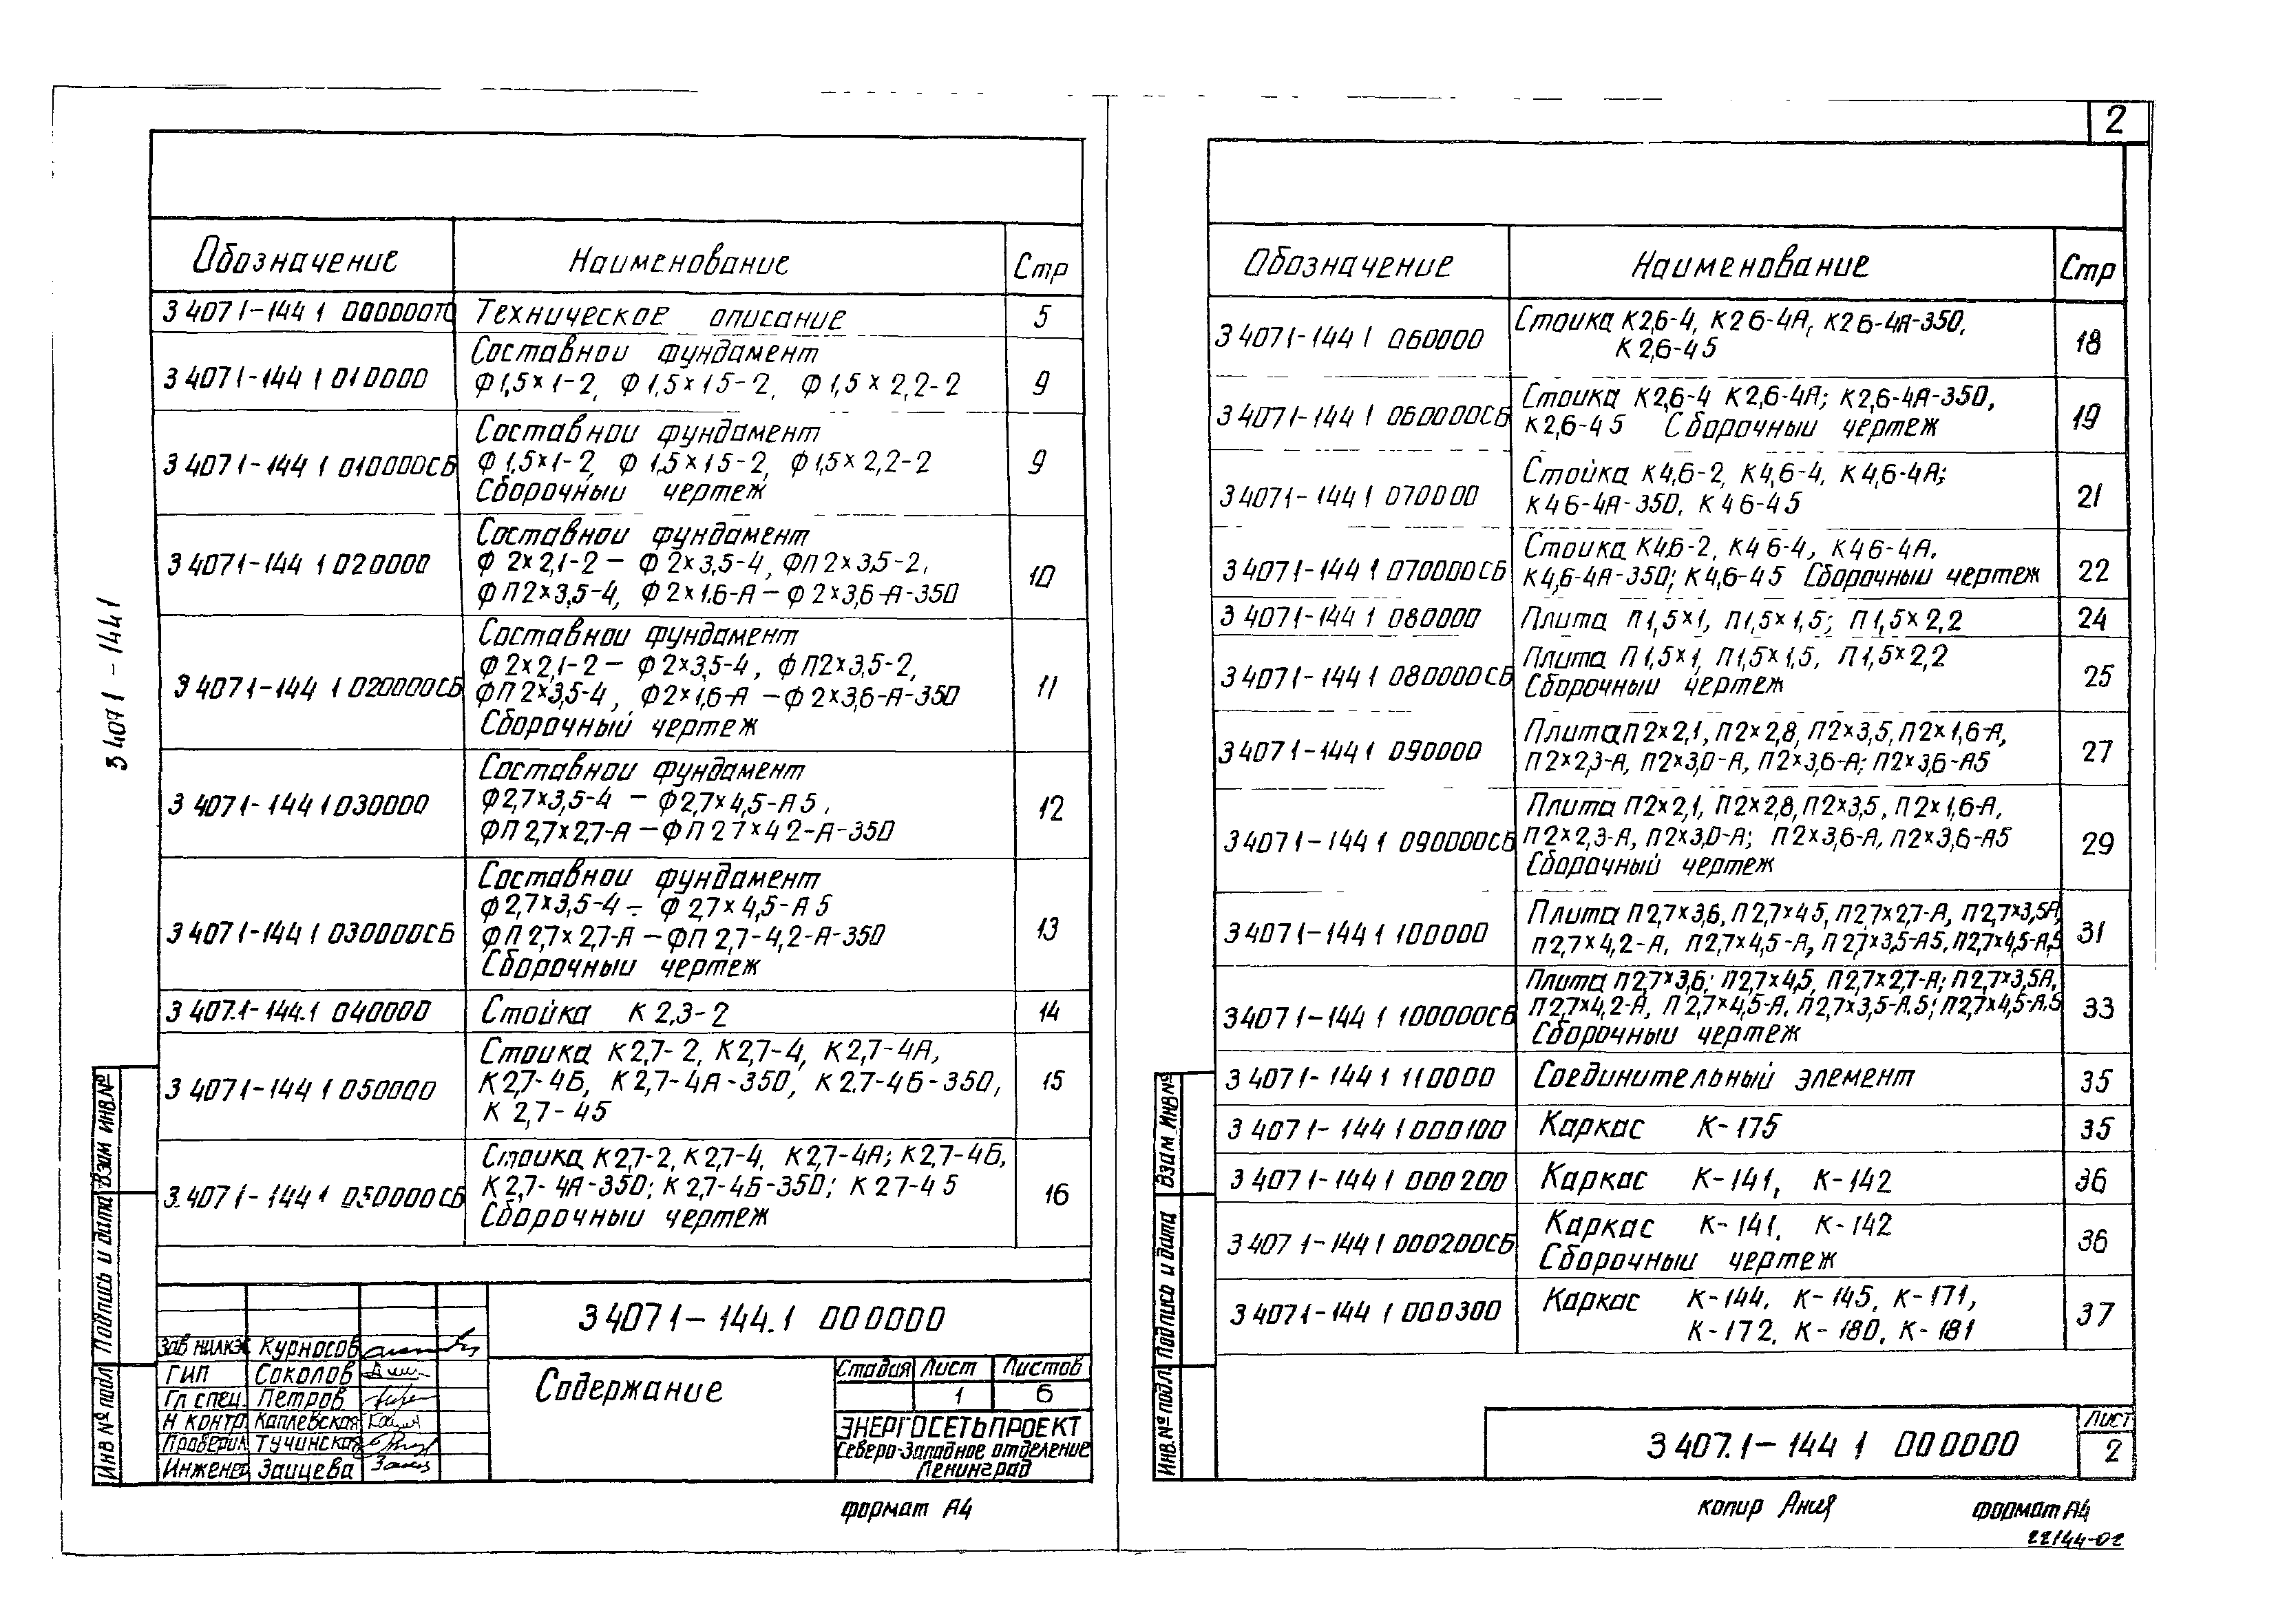 2
3 4071-1441
Обозначение Наименование Стр
3 4071-144 1 000000ТО Техническое описание 5
Составнои фундамент
3 4071-144 1 010000 Ф1,5×1-2, Ф1,5×15-2, Ф1,5×2,2-2 9
Составнои фундамент
3 4071-144 1 010000СБ Ф1,5×1-2, Ф1,5×15-2, Ф1,5×2,2-2 9
Сборочныи чертеж
Составнои фундамент
3 4071-144 1 020000 Ф2×2,1-2 – Ф2×3,5-4, ФП2×3.5-2, 10
ФП2×3,5-4, Ф2×1.6-А – Ф2×3,6-А-350
Составнои фундамент
Ф2×2,1-2 – Ф2×3,5-4, ФП2×3,5-2,
3 4071-144 1 020000СБ ФП2×3,5-4, Ф2×1,6-А – Ф2×3,6-А-350 11
Сборочный чертеж
Составнои фундамент
3 4071-144 1 030000 Ф2,7×3,5-4 – Ф2,7×4,5-А5, 12
ФП2,7×2,7-А – ФП27×42-А-350
Составнои фундамент
Ф2,7×3,5-4 – Ф27×4,5-А5
3 4071-144 1 030000СБ ФП2,7×2,7-А – ФП2,7-4,2-А-350 13
Сборочныи чертеж
3 407.1-144.1 040000 Стойка К2,3-2 14
Стоика К2,7-2, К2,7-4, К2,7-4А,
3 4071-144 1 050000 К2,7-4Б, К2,7-4А-350, К2.7-4Б-350, 15
К2,7-45
Стоика К2,7-2, К2,7-4, К2,7-4А; К2,7-4Б,
3.4071-144 1 050000СБ К2,7-4А-350; К2,7-4Б-350; К27-45 16
Сборочныи чертеж
3 4071-144.1 000000
Зав НИЛКЭ Курносов
ГИП Соколов
Гл спец. Петров
Н контр Каплевская
Проверил Тучинская
Инженер Заицева
Содержание
Стадия Лист Листов
1 6
ЭНЕРГОСЕТЬПРОЕКТ
Северо-Западное отделение
Ленинград
Инв № подл Подпись и дата Взам инв.№
формат А4
Обозначение Наименование Стр
3 4071-144 1 060000 Стоика К2,6-4, К26-4А, К26-4А-350, 18
К2,6-45
3 4071-144 1 060000СБ Стоика К2,6-4 К2,6-4А; К2,6-4А-350, 19
К2,6-45 Сборочныи чертеж
3 4071-144 1 070000 Стойка К4,6-2, К4,6-4, К4,6-4А; 21
К46-4А-350, К46-45
3 4071-144 1 070000СБ Стоика К46-2, К46-4, К46-4А. 22
К4,6-4А-350; К4,6-45 Сборочныи чертеж
3 4071-144 1 080000 Плита П1,5×1, П1,5×1,5; П1,5×2,2 24
3 4071-144 1 080000СБ Плита П1,5×1, П1,5×1,5, П1,5×2,2 25
Сборочныи чертеж
3 4071-144 1 090000 Плита П2×2,1, П2×2,8, П2×3,5, П2×1,6-А, 27
П2×2,3-А, П2×3,0-А, П2×3,6-А; П2×3,6-А5
Плита П2×2,1, П2×2,8, П2×3,5, П2×1,6-А,
3 4071-144 1 090000СБ П2×2,3-А, П2×3,0-А; П2×3,6-А, П2×3,6-А5 29
Сборочный чертеж
3 4071-144 1 100000 Плита П2,7×3,6, П2,7×45, П2,7×2,7-А, П2,7×3,5А, 31
П2,7×4,2-А, П2,7×4,5-А, П2,7×3,5-А5, П2,7×4,5-А,5
Плита П2,7×3,6; П2,7×4,5, П2,7×2,7-А; П2,7×3,5А,
3 4071-144 1 100000СБ П2,7×4,2-А, П2,7×4,5-А, П2,7×3,5-А.5; П2,7×4,5-А.5 33
Сборочныи чертеж
3 4071-144 1 110000 Соединительный элемент 35
3 4071-144 1 000100 Каркас К-175 35
3 4071-144 1 000200 Каркас К-141, К-142 36
3 4071-144 1 000200СБ Каркас К-141, К-142 36
Сборочныи чертеж
3 4071-144 1 000300 Каркас К-144, К-145, К-171, 37
К-172, К-180, К-181
3 407.1-144 1 000000
Лист
2
Инв.№ подл. Подпись и дата Взам Инв№
копир Ания
формат А4
22144-02